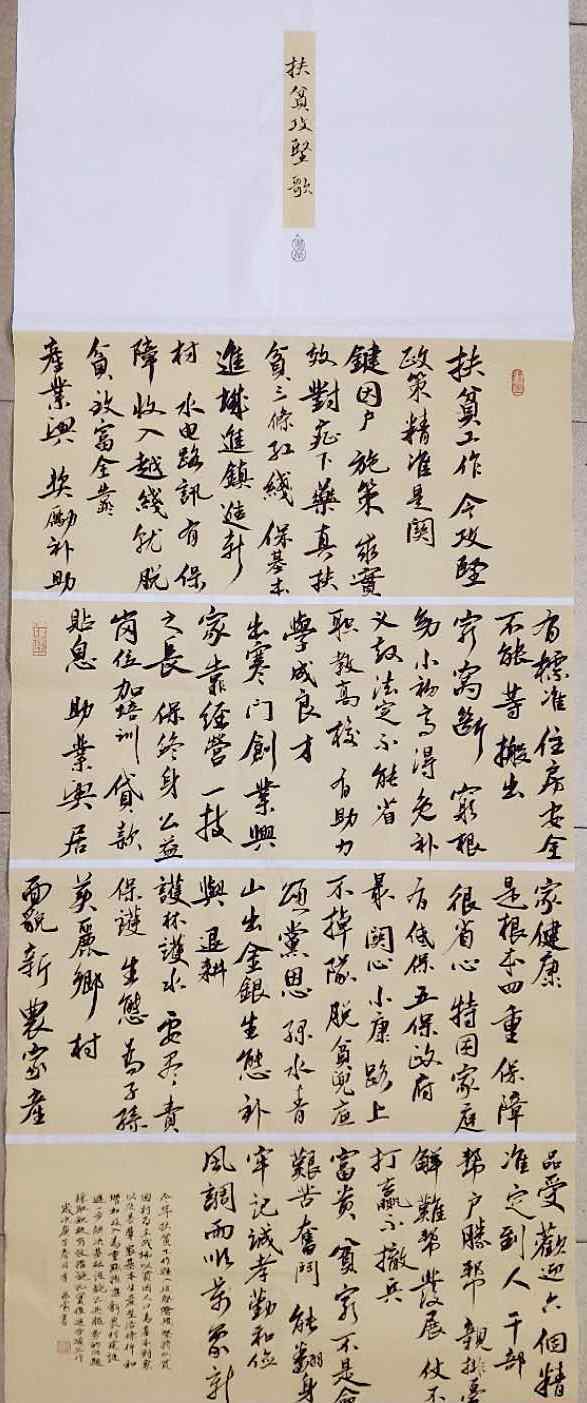 扶貧攻堅歌
扶貧工作 今攻堅
政策精准是関
鍵因户 施策 求實
效 對症下藥真扶
貧 三條紅綫 保基本
進城進鎮造新
村 水电路訊有保
障 收入越綫就脱
貧 致富全靠
産業興 奖勵补助
有標准 住房安全
不能等 搬出
穷窝断 窮根
幼小初高得免补
义教法定不能省
职教高校 有助力
學成良才
出寒门 創業興
家 靠經营 一技
之長 保終身 公益
岗位加培訓 貸款
貼息 助業興 居
家健康
是根本 四重保障
很省心 特困家庭
有低保 五保政府
最関心 小康路上
不掉隊 脱貧兜底
頌黨恩 绿水青
山出金銀 生態补
與 退耕
護林護水要尽責
保護 生態 為子孫
美麗鄉村
面貌新 農家産
品受歡迎 六個精
准定到人 干部
帮户滕帮 親排憂
解難帮發展 仗不
打赢不撤兵
富貴 貧穷不是命
艱苦奮鬥 能翻身
牢記誠孝勤和俭
風調雨順 萬象新